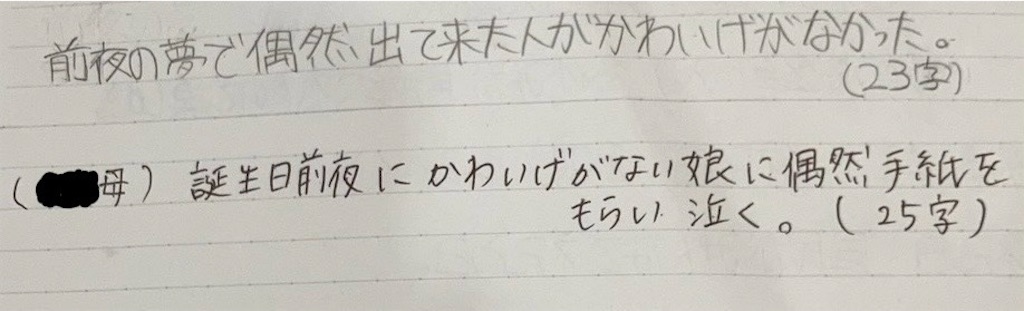 前夜の夢で偶然、出て来た人がかわいげがなかった。
(23字)
(母) 誕生日前夜にかわいげがない娘に偶然手紙を
もらい泣く。(25字)